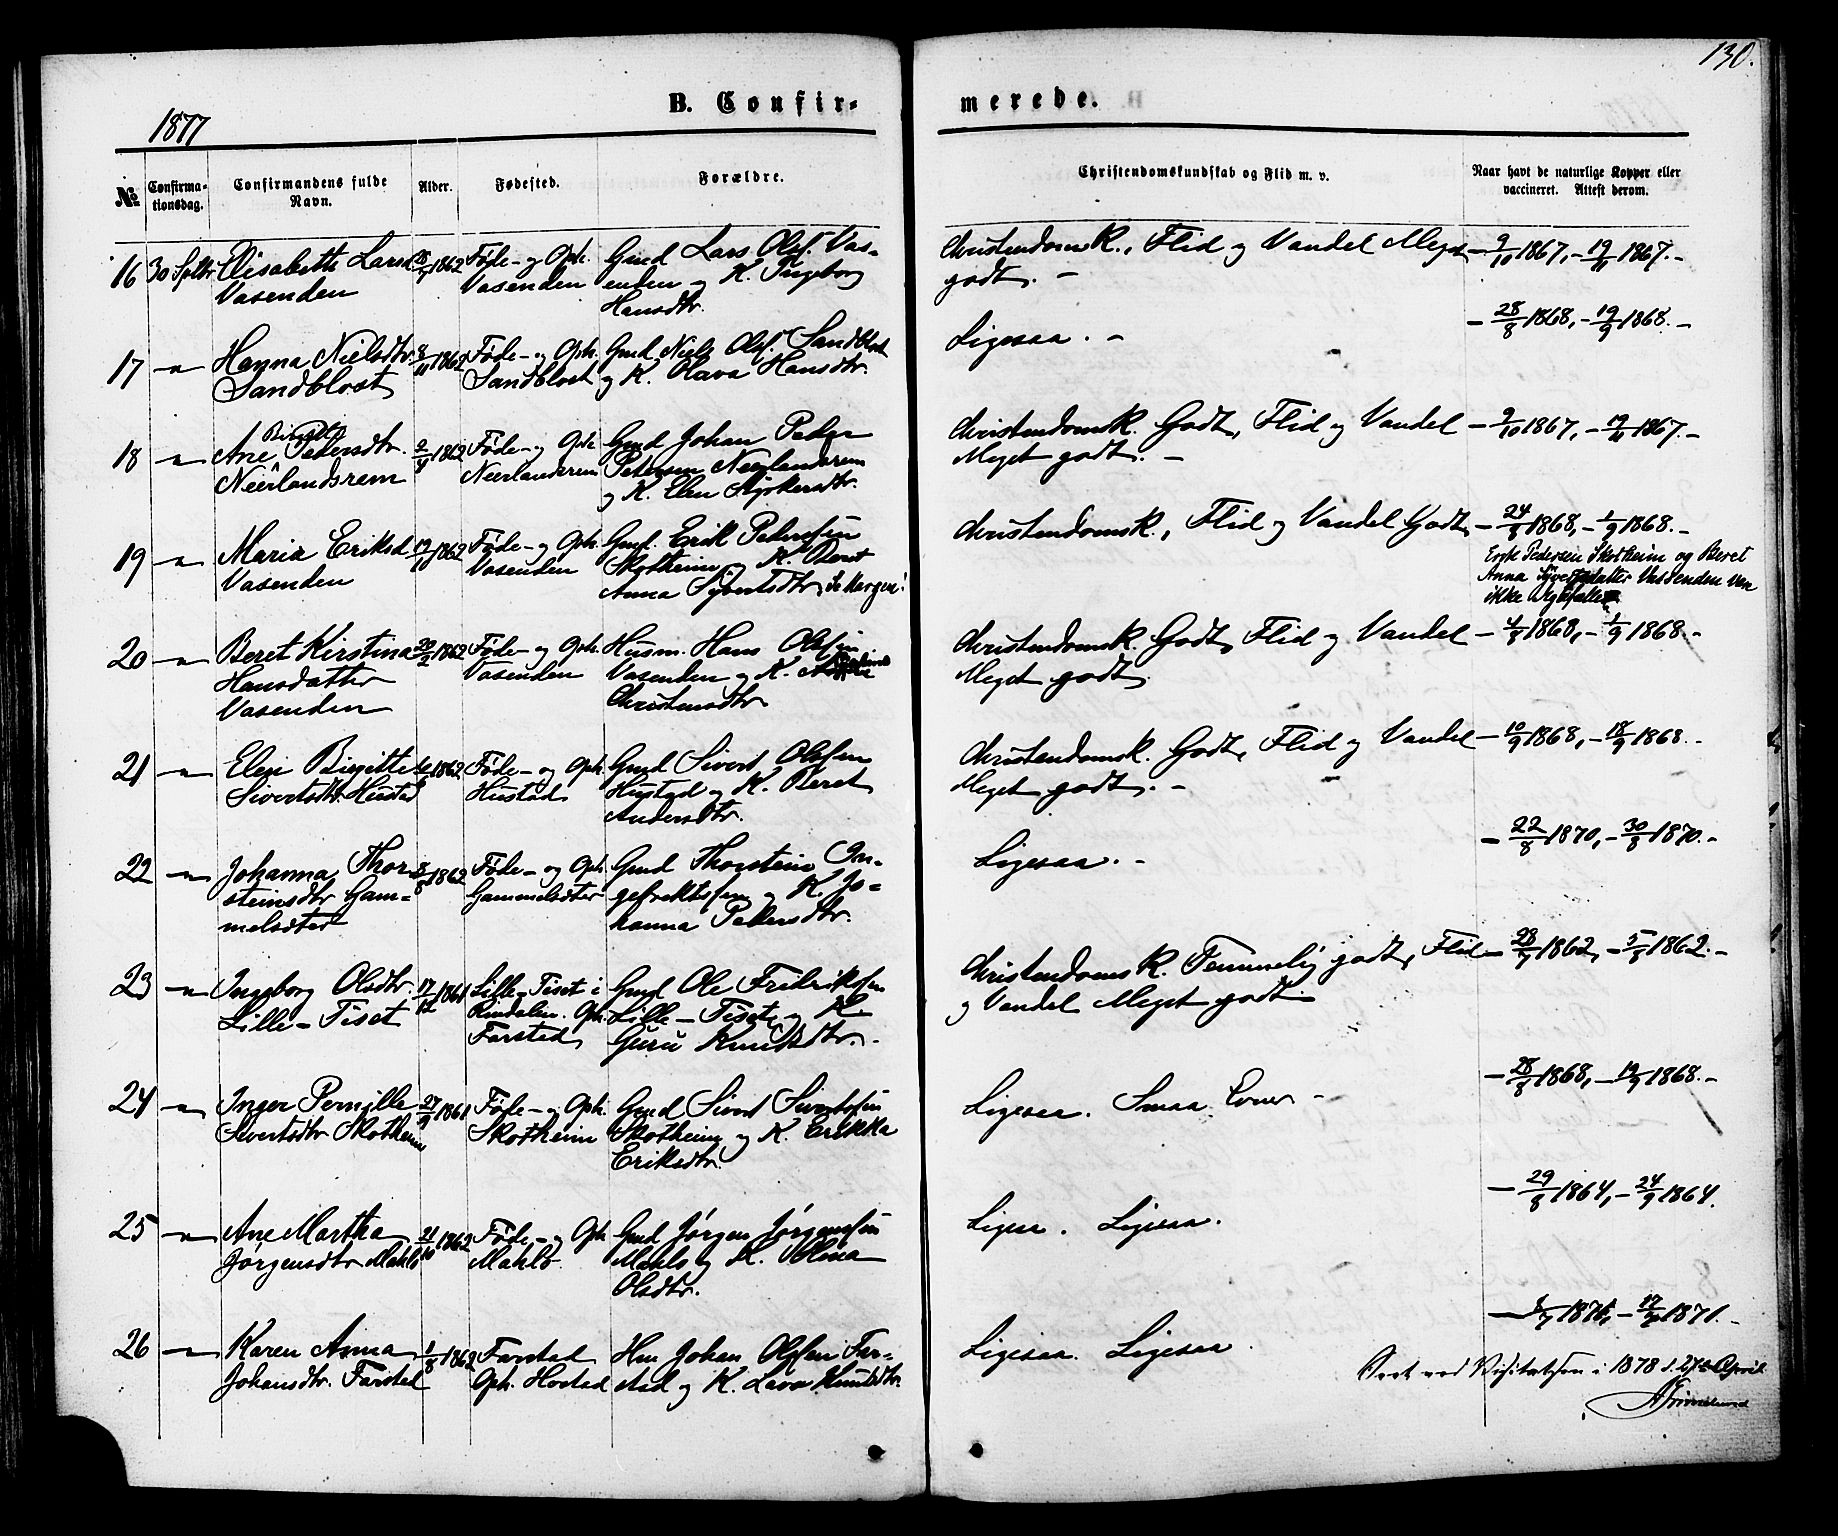 130.
1877
B. Confir-
merede.
№
Confirma-
tionsdag.
Confirmandens fulde
Navn.
Alder.
Fødested.
Forældre.
Christendomskundskab og Flid m. v.
Naar havt de naturlige Kopper eller
vaccineret. Attest derom.
16 30 Septbr Elisabeth Larsd 1862 Føde- og Oph. Gmd Lars Olsf. Vas-
Vasenden Vasenden enden og K. Ingeborg
Hansdtr.
Christendomsk., Flid og Vandel Meget
godt. -
- 9/10 1867, - 19/11 1867. -
17 -"- Hanna Nielsdtr. 8/11 1862 Føde- og Oph. Gmd Niels Olsf. Sandblost
Sandblost Sandblost og K. Olava Hansdtr.
Ligesaa. -
- 28/8 1868, - 19/9 1868. -
Birgitte
18 -"- Ane Pedersdtr. 1862 Føde- og Oph. Gmd Johan Peder
Neerlandsrem Neerlandsrem Petersen Neerlandsrem
og K. Elen
Christendomsk. Godt, Flid og Vandel
Meget godt. -
- 9/10 1867, - 19/11 1867. -
19 -"- Maria Eriksd 1862 Føde- og Oph. Erik Pedersen
Vasenden Vasenden Skotheim og K. Beret
Anna Syvertsdtr.
Christendomsk., Flid og Vandel Godt
- 24/8 1868, - 1/9 1868. -
Erik Pedersen Skotheim og Beret
Anna Vasenden
ikke
20 -"- Beret Kirstina 1862 Føde- og Oph. Husm. Hans Olsen
Hansdatter Vasenden Vasenden og K.
Vasenden Christensdtr
Christendomsk. Godt, Flid og Vandel
Meget godt.
1868, - 1/9 1868. -
21 -"- Elen Birgitte 1862 Føde- og Oph. Gmd Sivert Olsen
Sivertsdtr. Hustad Hustad Hustad og K. Beret
Andersdtr.
Christendomsk. Godt, Flid og Vandel
Meget godt. -
- 10/9 1868, - 18/9 1868. -
22 -"- Johanna Thor- 8/8 1862 Føde- og Oph Gmd Thorstein In-
steinsdtr Gam- Gammelsæter gefrektsen og K. Jo-
melsæter hanna Pedersdtr.
Ligesaa. -
- 22/8 1870, - 30/8 1870. -
23 -"- Ingeborg Olsdtr. 17/12 1861 Lille-Tiset i Gmd Ole Fridriksen
Lille-Tiset Rindalen. Oph. Lille-Tiset og K.
Farstad Guru Knudsdtr. -
Christendomsk. Temmelig godt, Flid
og Vandel Meget godt -
1862, 1862. -
24 -"- Inger Pernille 1861 Føde- og Oph. Gmd Sivert Sivertsen
Sivertsdtr Skotheim Skotheim Skotheim og K. Erikka
Eriksdtr.
Ligesaa. Smaa Evner -
- 28/8 1868, - 19/9 1868. -
25 -"- Ane Martha 21/10 1862 Føde- og Oph Gmd Jørgen Jørgensen
Jørgensdtr Mahlo Mahlo Mahlo og K.
Olsdtr.
Ligesaa. Ligesaa.
- 29/8 1864, - 24/9 1864.
26 -"- Karen Anna 1/8 1862 Farstad Hm Johan Olsen Far-
Johansdtr. Farstad Oph. Hostad stad og K. Lava Knudsdtr.
Ligesaa. Ligesaa.
1871, - 1871. -
Seet ved Visitatsen i 1878 d. 27de April
Grimelund